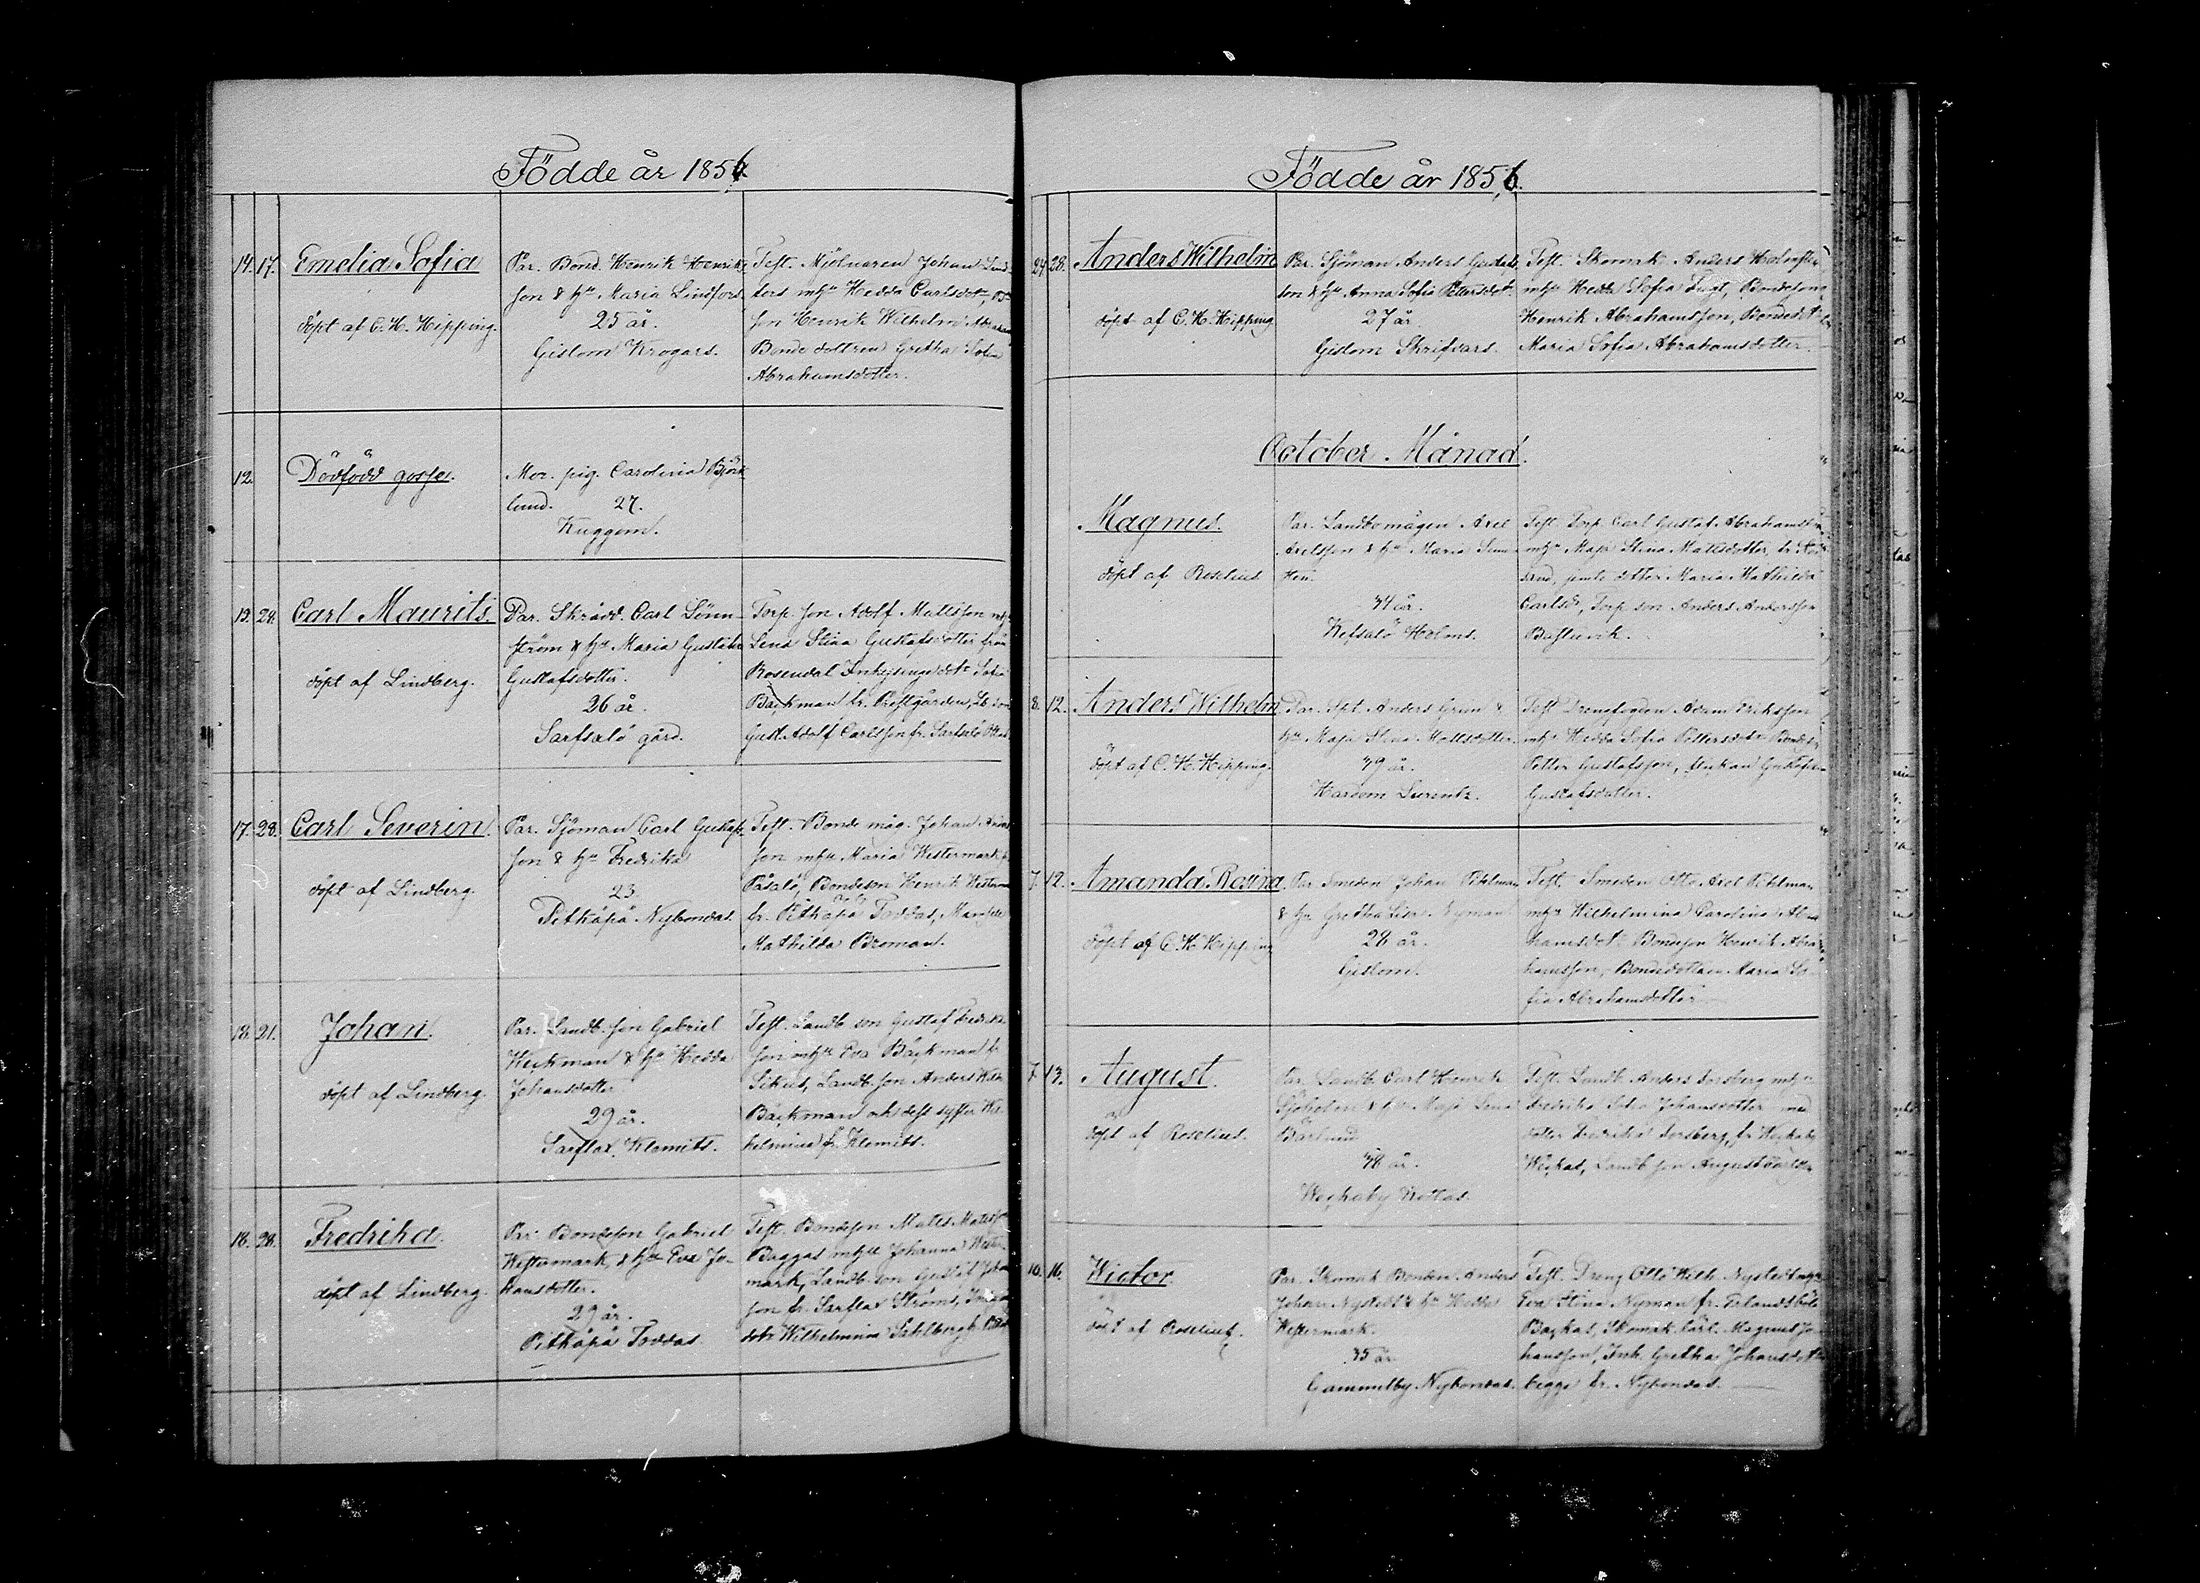 Födde år 1856.
14. 17. Emelia Sofia
döpt af C. H. Hipping.
Par. Bond. Henrik Henrik-
son & h:u Maria Lindfors
25 år.
Gislom Krogars.
Test. Mjölnaren Johan Lind-
fors m h:u Hedda Carlsdotr,
son Henrik Wilhelm
Bonde dottren Gretha Sofia
Abrahamsdotter.
12. Dödfödd gosse.
Mor. pig. Carolina Björk-
lund. 27.
Kuggom.
13. 28. Carl Maurits.
döpt af Lindberg.
Par. Skrädd. Carl Lönn-
ström & h:u Maria Gustafva
Gustafsdotter.
26 år.
Sarfsalö gård.
Torp. son Adolf Mattsson
Lena Stina Gustafsdotter från
Rosendal Inhysinge dotr Sofia
Bäckman fr. Prestgården,
Gust. Adolf Carlsson fr. Sarfsalö
17. 28. Carl Severin.
döpt af Lindberg.
Par. Sjöman Carl Gustafs-
son & h:u Fredrika
23.
Pitkäpä Nybondas.
Test. Bonde måg. Johan
son m h:u Maria Westermark
Påsalö, Bondeson Henrik
fr. Pitkäpä Toddas,
Mathilda Broman.
18. 21. Johan.
döpt af Lindberg.
Par. Landb. son Gabriel
Weckman & h:u Hedda
Johansdotter
29 år.
Sarflax Klemits.
Test. Landb. son Gustaf Fredriks-
son m h:u Eva Bäckman fr.
Landb. son Anders
Bäckman och dess syster Wil-
helmina fr. Klemits.
18. 28. Fredrika.
döpt af Lindberg.
Par. Bondeson Gabriel
Westermark, & h:u Eva Jo-
hansdotter.
29 år.
Pitkäpä Toddas.
Test. Bondeson Matts Mattsson
Baggas m h:u Johanna Wester-
mark, Landb. son Gustaf Johan
son fr. Sarflax Ströms,
dotr Wilhelmina Sahlberg
Födde år 1856.
24. 28. Anders Wilhelm
döpt af C. H. Hipping
Par. Sjöman Anders
son & h:u Anna Sofia Pettersdotr
27 år.
Gislom Skrifvars.
Test. Skomak. Anders Holmström
m h:u Hedda Sofia Bondeson
Henrik Abrahamsson, Bondedotr
Maria Sofia Abrahamsdotter.
October Månad.
Magnus.
döpt af Roselius
Par. Landbomågen Axel
Axelsson & h:u Maria
34 år.
Kefsalö Holms.
Test. Torp. Carl Gustaf Abrahamsson
m h:u Maja Stina Mattsdotter,
jemte dotter Maria Mathilda
Carlsdr, Torp. son Anders Andersson
Bastuvik.
8. 12. Anders Wilhelm
döpt af C. H. Hipping.
Par. Spt. Anders Grun &
h:u Maja Stina Mattsdotter.
39 år.
Hardom Lurentz.
Test. Drengfogden Adam Eriksson
m h:u Hedda Sofia Pettersdotr
Petter Gustafsson, flickan
Gustafsdotter.
7. 12. Amanda Rosina
döpt af C. H. Hipping
Par. Smeden Johan Pihlman
& h:u Gretha Lisa Nyman
28 år.
Gislom.
Test. Smeden Otto Axel Pihlman
m h:u Wilhelmina Carolina Abra-
hamsdotr Bondeson Henrik Abra-
hamsson, Bondedottren Maria So-
fia Abrahamsdotter
7. 13. August.
döpt af Roselius.
Par. Landb. Carl Henrik
Sjöholm & h:u Maja Lena
Bärlund
38 år.
Weckoby Kottas.
Test. Landb. Anders Forsberg m h:u
Fredrika Sofia Johansdotter med
dotter Fredrika Forsberg, fr. Weckoby
Weckas, Landb. son August
10. 16. Wictor
döpt af Roselius.
Par. Skomak. Bonden Anders
Johan Nystedt & h:u Hedda
Westermark.
35 år
Gammelby Nybondas.
Test. Dreng Otto Wilh. Nystedt
Eva Stina Nyman fr. Erlandsböle
Backas, Skomak. Carl Magnus Jo-
hansson, Inh. Gretha Johansdotr
begge fr. Nybondas.